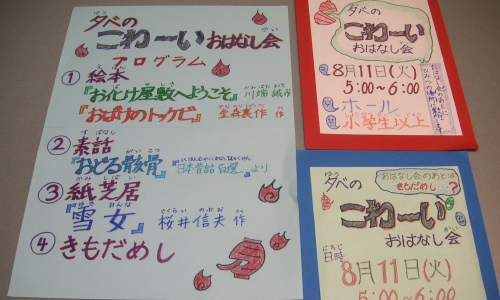 夕べの
こわーい おはなし会
プログラム
① 絵本
『お化け屋敷へようこそ』 川端誠 作
『おばけのトッケビ』
② 素話
『おどる骸骨』 『日本昔話百選』より
③ 紙芝居
『雪女』 桜井信夫 作
④ きもだめし
夕べの
こわーい
おはなし会
8月11日(火)
5:00～6:00
ホール
小学生以上
夕べの
おはなし会のあとは
きもだめし…?
こわーい
おはなし会
日時
8月11日(火)
5:00～6:00